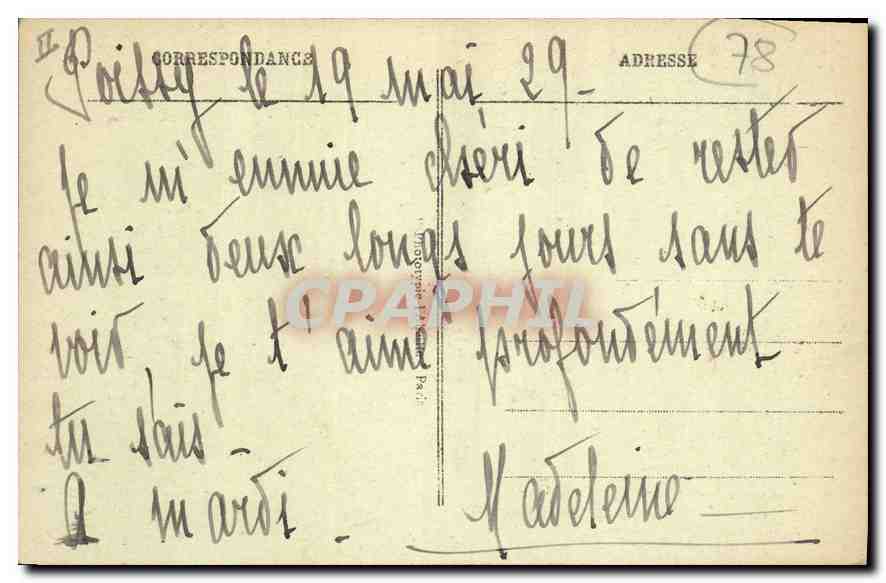 II
CORRESPONDANCE
ADRESSE
78
Poissy le 19 mai 29-
Je m'ennuie chéri de rester
ainsi deux longs jours sans te
voir, je t'aime profondément
tu sais -
A mardi. Madeleine
CPAPHIL
Paris